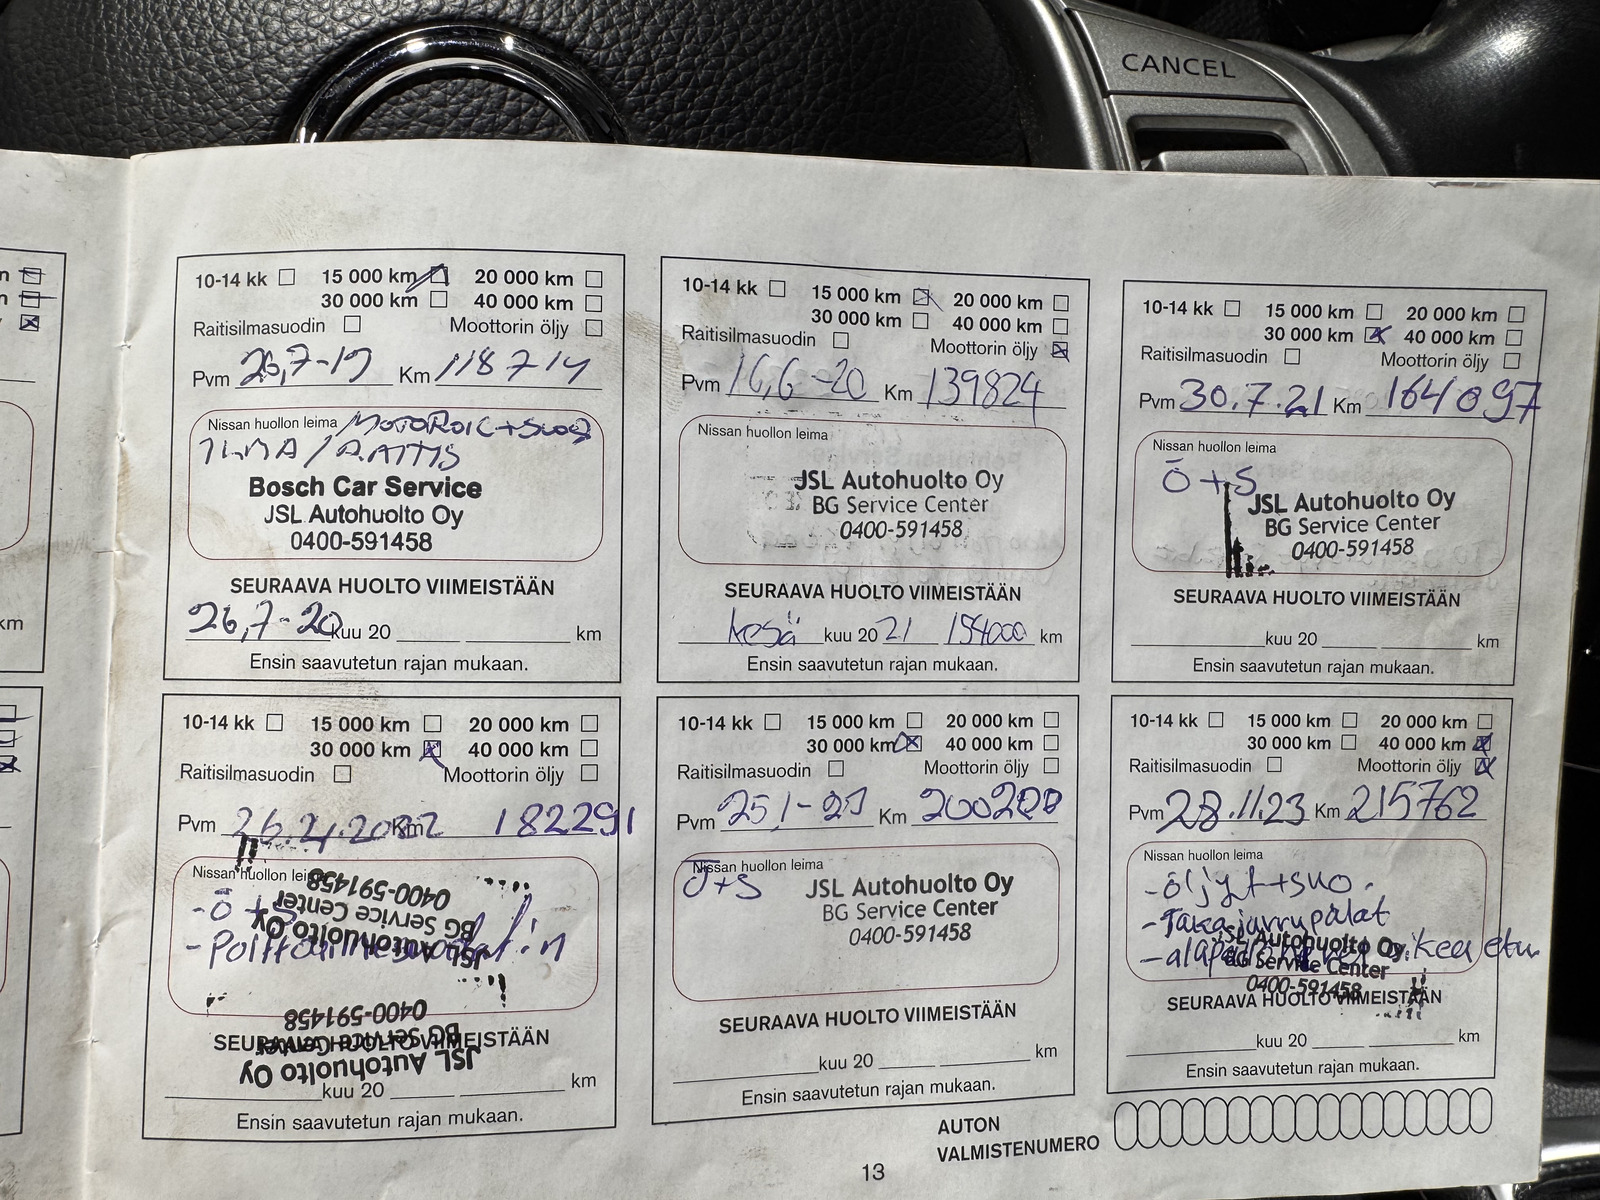 CANCEL
10-14 kk 15 000 km 20 000 km
30 000 km 40 000 km
Raitisilmasuodin Moottorin öljy
Pvm 26,7-19 Km 118 714
Nissan huollon leima
ILMA / RAITIS
Bosch Car Service
JSL Autohuolto Oy
0400-591458
SEURAAVA HUOLTO VIIMEISTÄÄN
26,7-20 kuu 20 km
Ensin saavutetun rajan mukaan.
10-14 kk 15 000 km 20 000 km
30 000 km 40 000 km
Raitisilmasuodin Moottorin öljy
Pvm 16,6-20 Km 139824
Nissan huollon leima
JSL Autohuolto Oy
BG Service Center
0400-591458
SEURAAVA HUOLTO VIIMEISTÄÄN
kesä kuu 20 21 154000 km
Ensin saavutetun rajan mukaan.
10-14 kk 15 000 km 20 000 km
30 000 km 40 000 km
Raitisilmasuodin Moottorin öljy
Pvm 30.7.21 Km 164097
Nissan huollon leima
Ö+S
JSL Autohuolto Oy
BG Service Center
0400-591458
SEURAAVA HUOLTO VIIMEISTÄÄN
kuu 20 km
Ensin saavutetun rajan mukaan.
10-14 kk 15 000 km 20 000 km
30 000 km 40 000 km
Raitisilmasuodin Moottorin öljy
Pvm Km 182291
Nissan huollon leima
0400-591458
BG Service Center
JSL Autohuolto Oy
- Ö+S
0400-591458
BG Service Center
JSL Autohuolto Oy
SEURAAVA HUOLTO VIIMEISTÄÄN
kuu 20 km
Ensin saavutetun rajan mukaan.
10-14 kk 15 000 km 20 000 km
30 000 km 40 000 km
Raitisilmasuodin Moottorin öljy
Pvm Km
Nissan huollon leima
Ö+S
JSL Autohuolto Oy
BG Service Center
0400-591458
SEURAAVA HUOLTO VIIMEISTÄÄN
kuu 20 km
Ensin saavutetun rajan mukaan.
10-14 kk 15 000 km 20 000 km
30 000 km 40 000 km
Raitisilmasuodin Moottorin öljy
Pvm 28.11.23 Km 215762
Nissan huollon leima
- öljyt+suo.
- Takajarrupalat
JSL Autohuolto Oy
BG Service Center
0400-591458
SEURAAVA HUOLTO VIIMEISTÄÄN
kuu 20 km
Ensin saavutetun rajan mukaan.
AUTON
VALMISTENUMERO
13
km